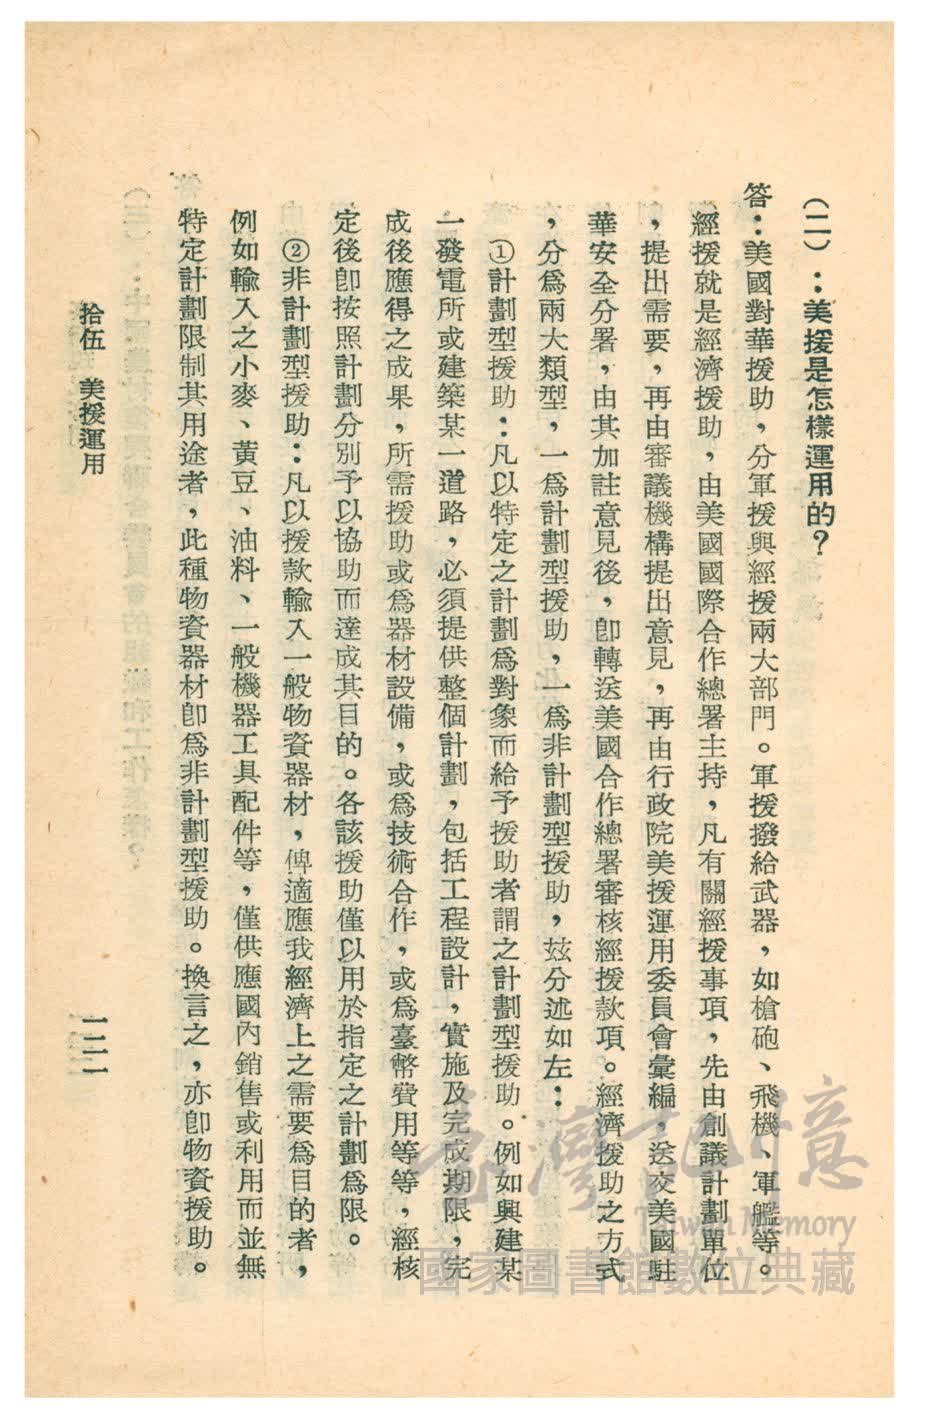 （二）：美援是怎樣運用的？
答：美國對華援助，分軍援與經援兩大部門。軍援撥給武器，如槍砲、飛機、軍艦等。
經援就是經濟援助，由美國國際合作總署主持，凡有關經援事項，先由創議計劃單位
，提出需要，再由審議機構提出意見，再由行政院美援運用委員會彙編，送交美國駐
華安全分署，由其加註意見後，卽轉送美國合作總署審核經援款項。經濟援助之方式
，分爲兩大類型，一爲計劃型援助，一爲非計劃型援助，玆分述如左：
①計劃型援助：凡以特定之計劃爲對象而給予援助者謂之計劃型援助。例如興建某
一發電所或建築某一道路，必須提供整個計劃，包括工程設計，實施及完成期限，完
成後應得之成果，所需援助或爲器材設備，或爲技術合作，或爲臺幣費用等等，經核
定後卽按照計劃分別予以協助而達成其目的。各該援助僅以用於指定之計劃爲限。
②非計劃型援助：凡以援款輸入一般物資器材，俾適應我經濟上之需要爲目的者，
例如輸入之小麥、黃豆、油料、一般機器工具配件等，僅供應國內銷售或利用而並無
特定計劃限制其用途者，此種物資器材卽爲非計劃型援助。換言之，亦卽物資援助。
拾伍　美援運用
一二一
臺灣記憶
Taiwan Memory
國家圖書館數位典藏